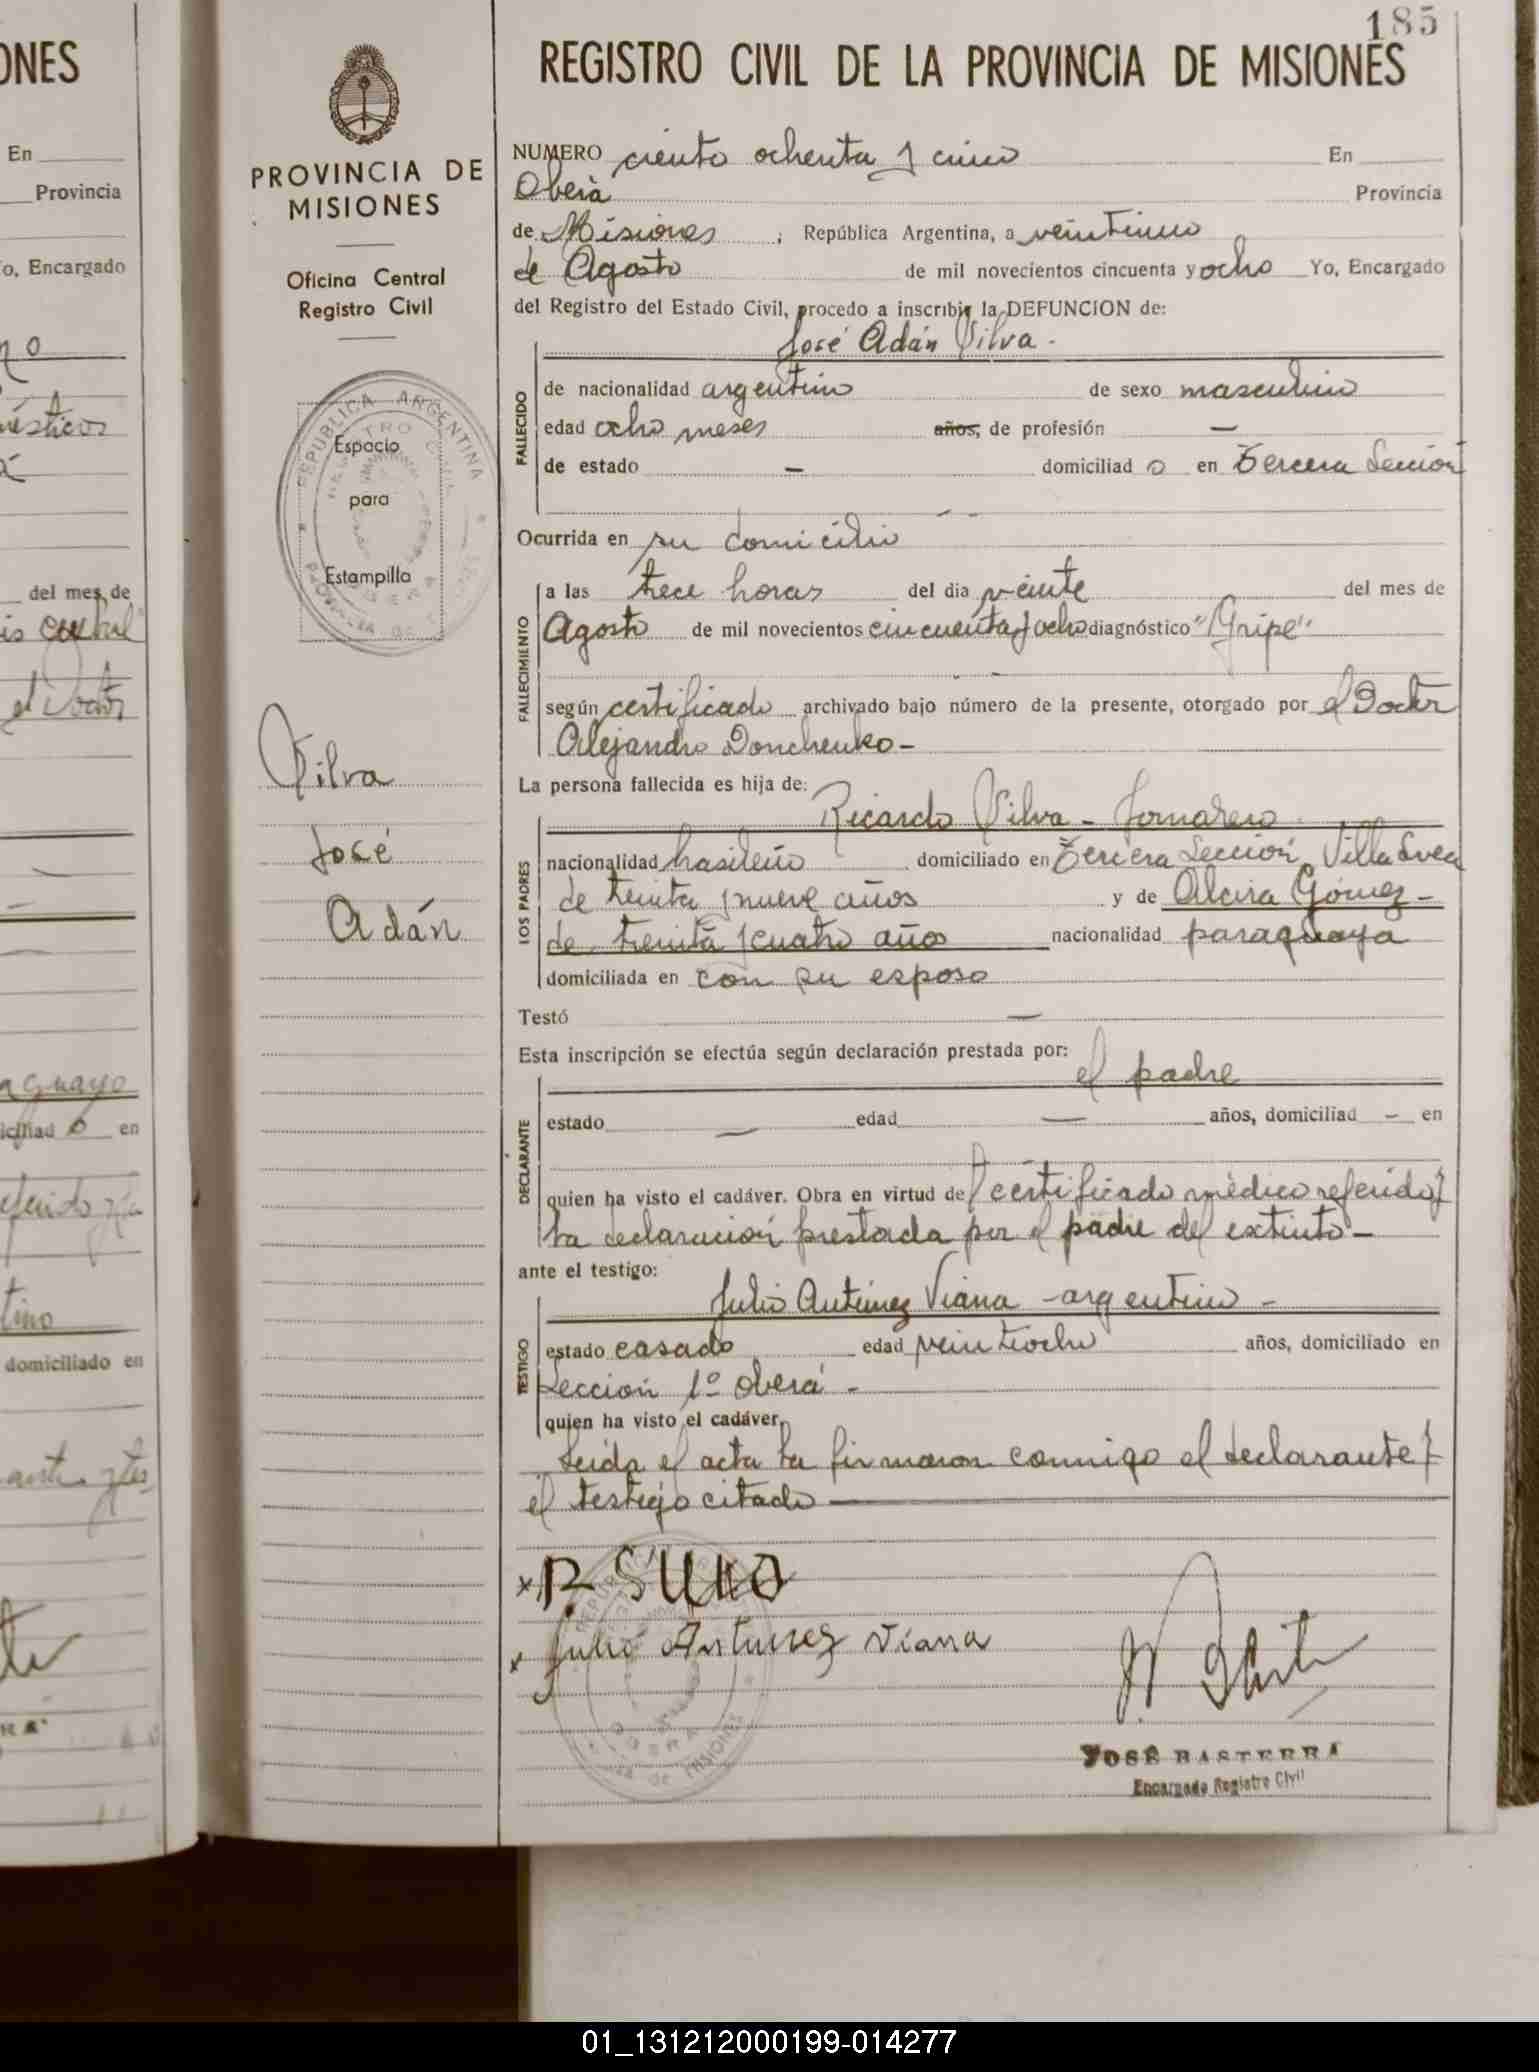 185
ONES
En
Provincia
o, Encargado
no
mésticos
del mes de
el Doctor
aguayo
iciliad o en
tino
domiciliado en
PROVINCIA DE
MISIONES
Oficina Central
Registro Civil
REPUBLICA ARGENTINA
Espacio
para
Estampilla
Silva
José
Adán
REGISTRO CIVIL DE LA PROVINCIA DE MISIONES
NUMERO ciento ochenta y cinco En
Oberá Provincia
de Misiones ; República Argentina, a veintiuno
de Agosto de mil novecientos cincuenta y ocho Yo, Encargado
del Registro del Estado Civil, procedo a inscribir la DEFUNCION de:
José Adán Silva.
FALLECIDO
de nacionalidad argentino de sexo masculino
edad ocho meses años, de profesión —
de estado — domiciliad o en Tercera Sección
Ocurrida en su domicilio
FALLECIMIENTO
a las trece horas del dia veinte del mes de
Agosto de mil novecientos cincuenta y ocho diagnóstico "Gripe"
según certificado archivado bajo número de la presente, otorgado por el Doctor
Alejandro Donchenko-
La persona fallecida es hija de:
LOS PADRES
Ricardo Silva - Jornalero
nacionalidad brasileño domiciliado en Tercera Sección, Villa Svea
de treinta y nueve años y de Alcira Gómez-
de treinta y cuatro años nacionalidad paraguaya
domiciliada en con su esposo
Testó —
Esta inscripción se efectúa según declaración prestada por:
el padre
DECLARANTE
estado — edad — años, domiciliad - en
quien ha visto el cadáver. Obra en virtud del certificado médico referido y
la declaración prestada por el padre del extinto-
ante el testigo:
TESTIGO
Julio Antunez Viana - argentino -
estado casado edad veintiocho años, domiciliado en
Sección 1º Oberá -
quien ha visto el cadáver.
Leída el acta la firmaron conmigo el declarante y
el testigo citado
x R. Silva
x Julio Antunez Viana
JOSÉ BASTERRA
Encargado Registro Civil
01_131212000199-014277